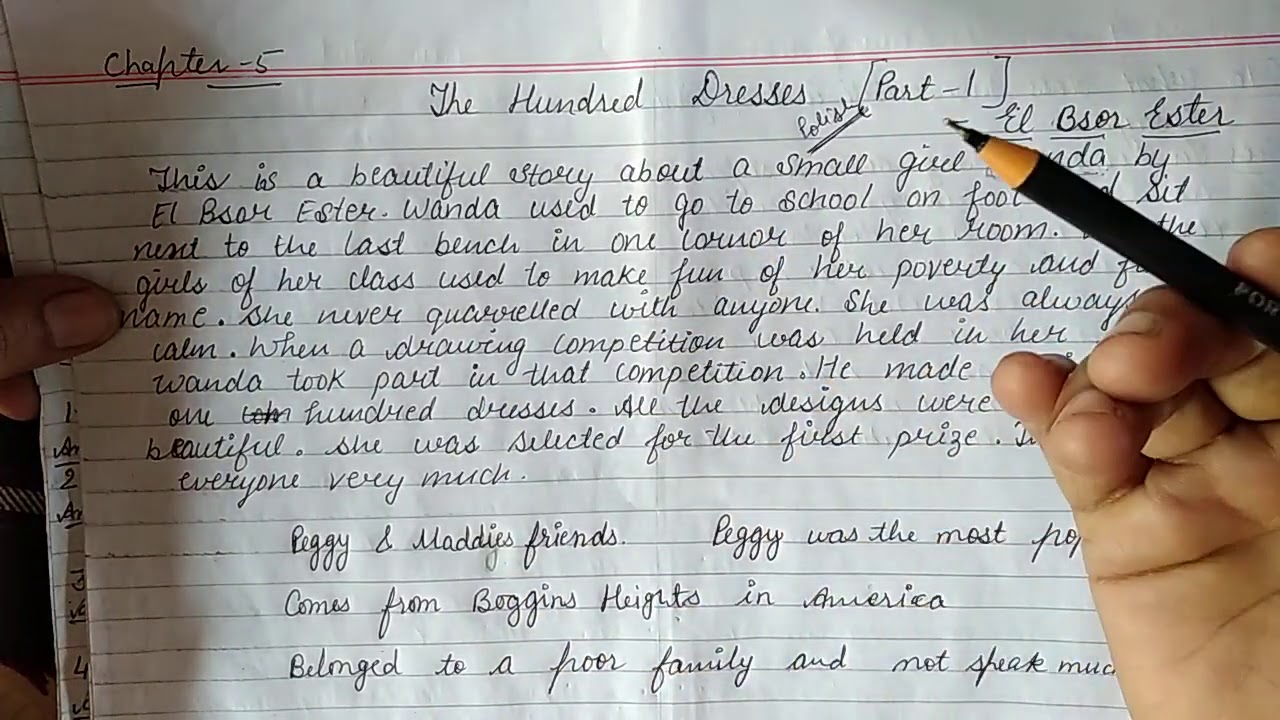 Chapter-5
The Hundred Dresses [Part-1]
Polish
- El Bsor Ester
This is a beautiful story about a small girl by
El Bsor Ester. Wanda used to go to school on foot sit
nent to the last bench in one cornor of her room. the
girls of her class used to make fun of her poverty and
name. She never quarrelled with anyone. She was always
calm. When a drawing competition was held in her
Wanda took part in that competition. He made
one hundred dresses. All the designs were
beautiful. She was selected for the first prize.
everyone very much.
Peggy & Maddies friends. Peggy was the most
Comes from Boggins Heights in America
Belonged to a poor family and not speak much
1
An
2
An
3
4